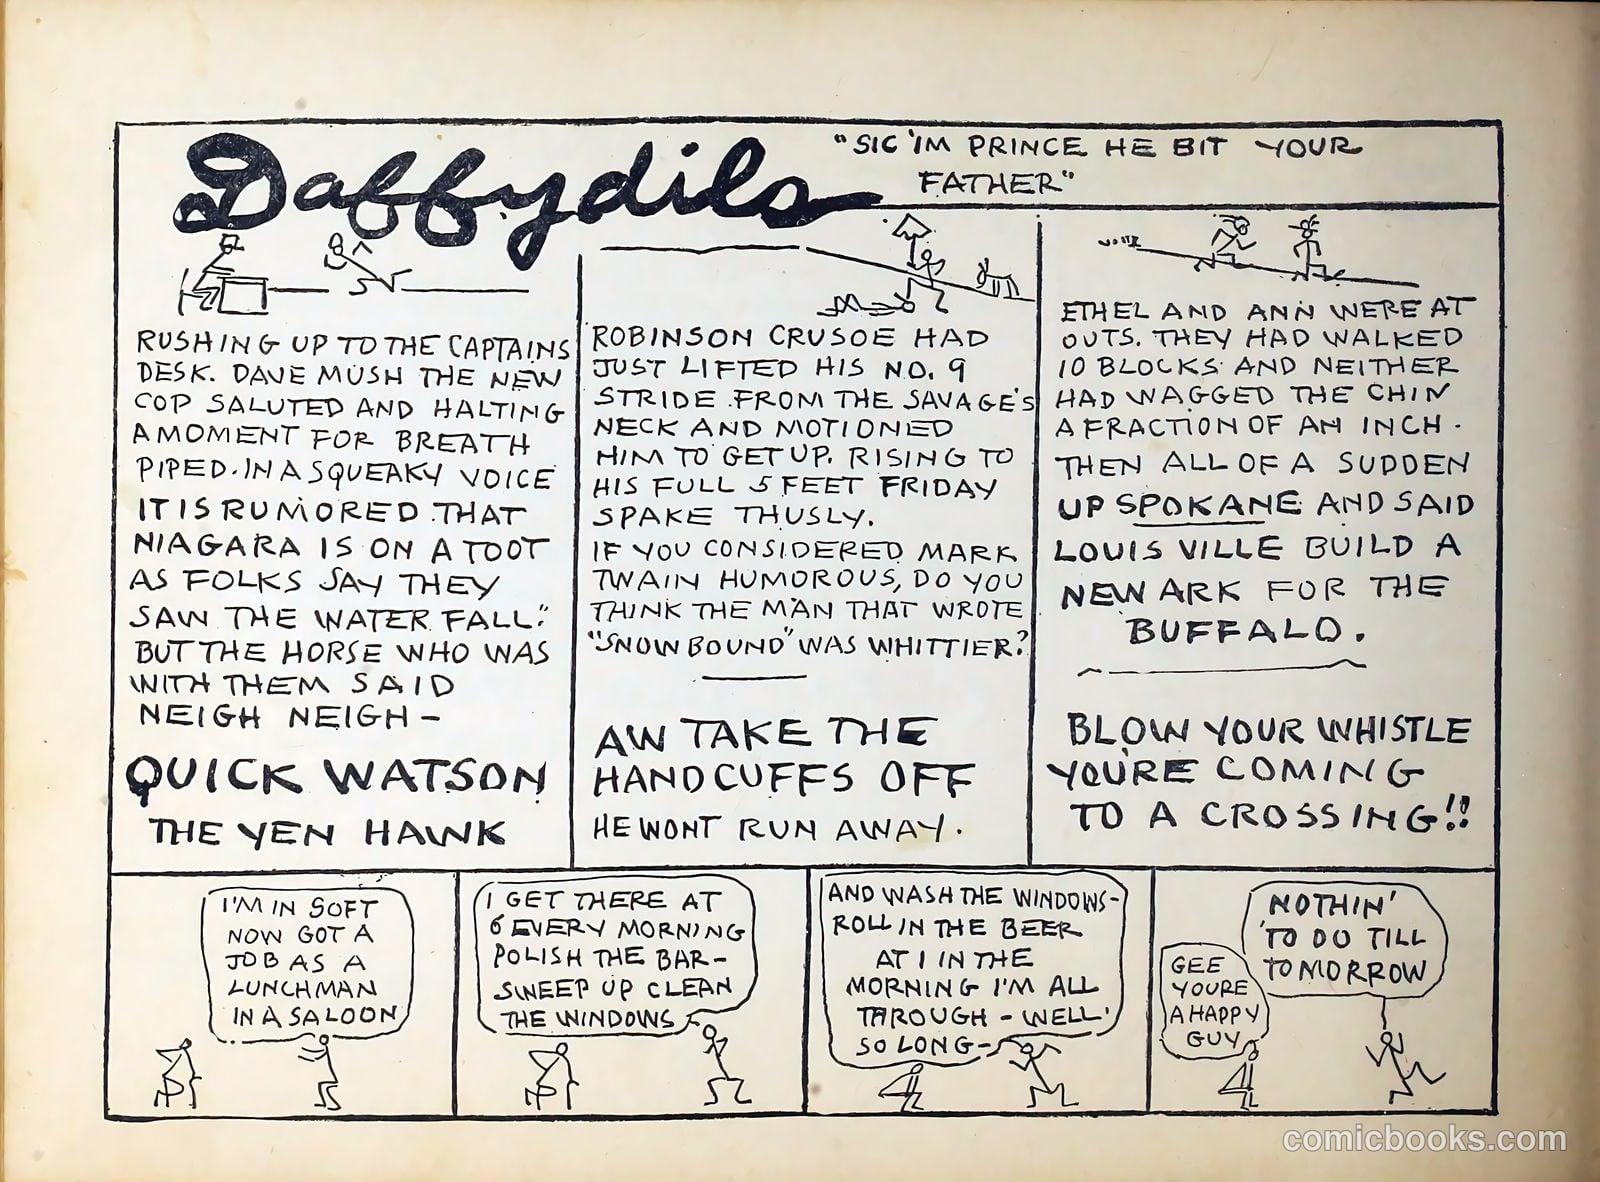 Daffydils
"SIC 'IM PRINCE HE BIT YOUR
FATHER"
RUSHING UP TO THE CAPTAINS
DESK. DAVE MUSH THE NEW
COP SALUTED AND HALTING
A MOMENT FOR BREATH
PIPED. IN A SQUEAKY VOICE
IT IS RUMORED THAT
NIAGARA IS ON A TOOT
AS FOLKS SAY THEY
SAW THE WATER FALL."
BUT THE HORSE WHO WAS
WITH THEM SAID
NEIGH NEIGH -
QUICK WATSON
THE YEN HAWK
ROBINSON CRUSOE HAD
JUST LIFTED HIS NO. 9
STRIDE FROM THE SAVAGE'S
NECK AND MOTIONED
HIM TO GET UP. RISING TO
HIS FULL 5 FEET FRIDAY
SPAKE THUSLY.
IF YOU CONSIDERED MARK
TWAIN HUMOROUS, DO YOU
THINK THE MAN THAT WROTE
"SNOWBOUND" WAS WHITTIER?
AW TAKE THE
HANDCUFFS OFF
HE WONT RUN AWAY.
ETHEL AND ANN WERE AT
OUTS. THEY HAD WALKED
10 BLOCKS AND NEITHER
HAD WAGGED THE CHIN
A FRACTION OF AN INCH.
THEN ALL OF A SUDDEN
UP SPOKANE AND SAID
LOUIS VILLE BUILD A
NEW ARK FOR THE
BUFFALO.
BLOW YOUR WHISTLE
YOU'RE COMING
TO A CROSSING!!
I'M IN SOFT
NOW GOT A
JOB AS A
LUNCHMAN
IN A SALOON
I GET THERE AT
6 EVERY MORNING
POLISH THE BAR -
SWEEP UP CLEAN
THE WINDOWS
AND WASH THE WINDOWS -
ROLL IN THE BEER
AT 1 IN THE
MORNING I'M ALL
THROUGH - WELL'
SO LONG -
GEE
YOURE
A HAPPY
GUY
NOTHIN'
TO DO TILL
TOMORROW
comicbooks.com